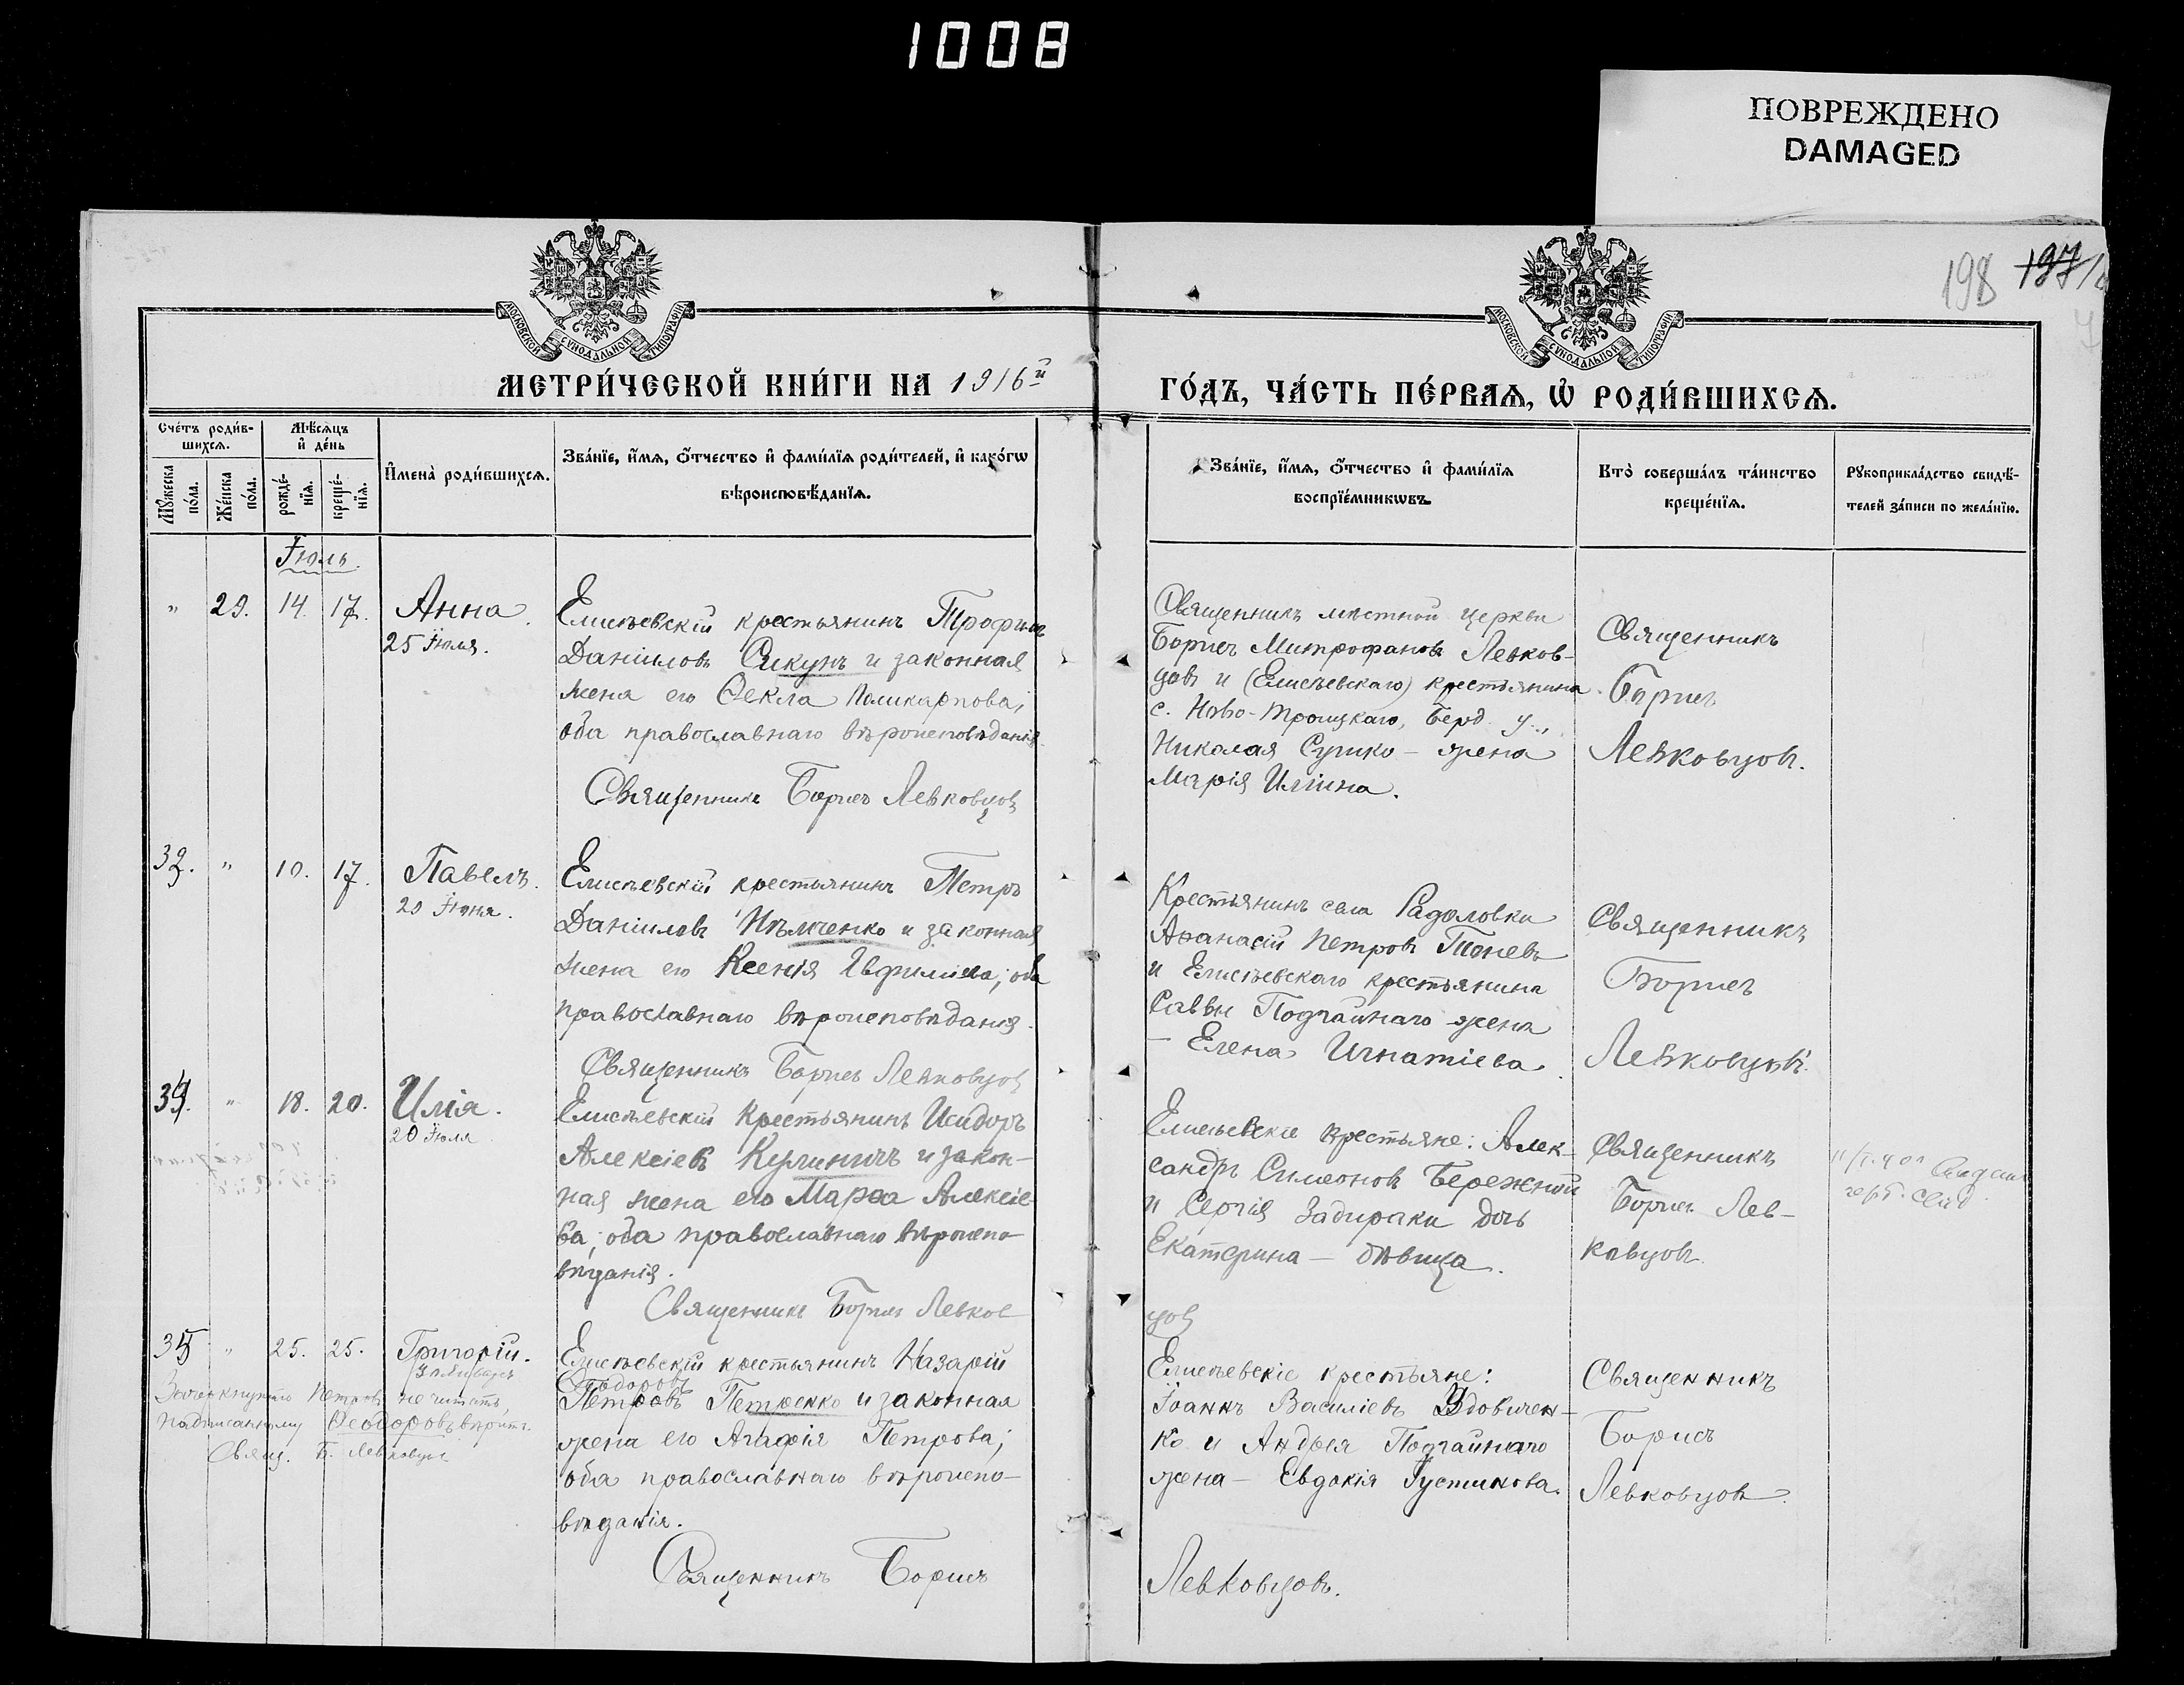 1008
ПОВРЕЖДЕНО
DAMAGED
198 197
МОСКОВСКОЙ СѴНОДАЛЬНОЙ ТИПОГРАФІИ
МОСКОВСКОЙ СѴНОДАЛЬНОЙ ТИПОГРАФІИ
МЕТРИ́ЧЕСКОЙ КНИ́ГИ НА 1916й
ГО́ДЪ, ЧА́СТЬ ПЕ́РВАѦ, Ѡ҆ РОДИ́ВШИХСѦ.
Сче́тъ роди́в-
шихсѧ.
Мѣ́сѧцъ
и҆ де́нь
Мꙋ́жеска
по́ла.
Же́нска
по́ла.
рожде́-
нїѧ.
креще́-
нїѧ.
И҆мена̀ роди́вшихсѧ.
Зва́нїе, и҆́мѧ, ѻ҆́тчество и҆ фами́лїѧ роди́телей, и҆ како́гѡ
вѣроисповѣ́данїѧ.
Зва́нїе, и҆́мѧ, ѻ҆́тчество и҆ фами́лїѧ
воспрїе́мникѡвъ
Кто̀ соверша́лъ та́инство
креще́нїѧ.
Рꙋкоприкла́дство свидѣ́-
телей за́писи по жела́нїю.
Іюль.
" 29. 14. 17. Анна.
25 Іюля.
Елисѣевскій крестьянинъ Трофимъ
Даніиловъ Сикунъ и законная
жена его Ѳекла Поликарпова;
оба православнаго вѣроисповѣданія.
Священникъ Борисъ Левковцовъ
Священникъ мѣстной церкви
Борисъ Митрофановъ Левков-
цовъ и (Елисѣевскаго) крестьянина
с. Ново-Троицкаго, Берд. у.,
Николая Сушко - жена
Марія Иліина.
Священникъ
Борисъ
Левковцовъ.
32. " 10. 17. Павелъ.
29 Іюня.
Елисѣевскій крестьянинъ Петръ
Даніиловъ Нѣмченко и законная
жена его Ксенія Евфиміева; оба
православнаго вѣроисповѣданія.
Священникъ Борисъ Левковцовъ
Крестьянинъ села Радоловки
Аѳанасій Петровъ Тоневъ
и Елисѣевскаго крестьянина
Саввы Подгайнаго жена
- Елена Игнатіева.
Священникъ
Борисъ
Левковцовъ.
" 18. 20. Илія.
20 Іюля
Елисѣевскій крестьянинъ Исидоръ
Алексіевъ Кулиничъ и закон-
ная жена его Марѳа Алексіе-
ва; оба православнаго вѣроиспо-
вѣданія.
Священникъ Борисъ Левков-
Елисѣевскіе крестьяне: Алек-
сандръ Симеоновъ Бережной
и Сергія Задираки дочь
Екатерина - дѣвица.
цовъ
Священникъ
Борисъ Лев-
ковцовъ.
" 25. 25. Григорій.
Елисѣевскій крестьянинъ Назарій
Ѳеодоровъ
Петровъ Петренко и законная
жена его Агафія Петрова;
оба православнаго вѣроиспо-
вѣданія.
Священникъ Борисъ
Зачеркнутое Петровъ не читать,
надписанному Ѳеодоровъ вѣрить.
Свящ. Б. Левковцовъ
Елисѣевскіе крестьяне:
Іоаннъ Василіевъ Удовичен-
ко и Андрея Подгайнаго
жена - Евдокія Іустинова.
Левковцовъ.
Священникъ
Борисъ
Левковцовъ.